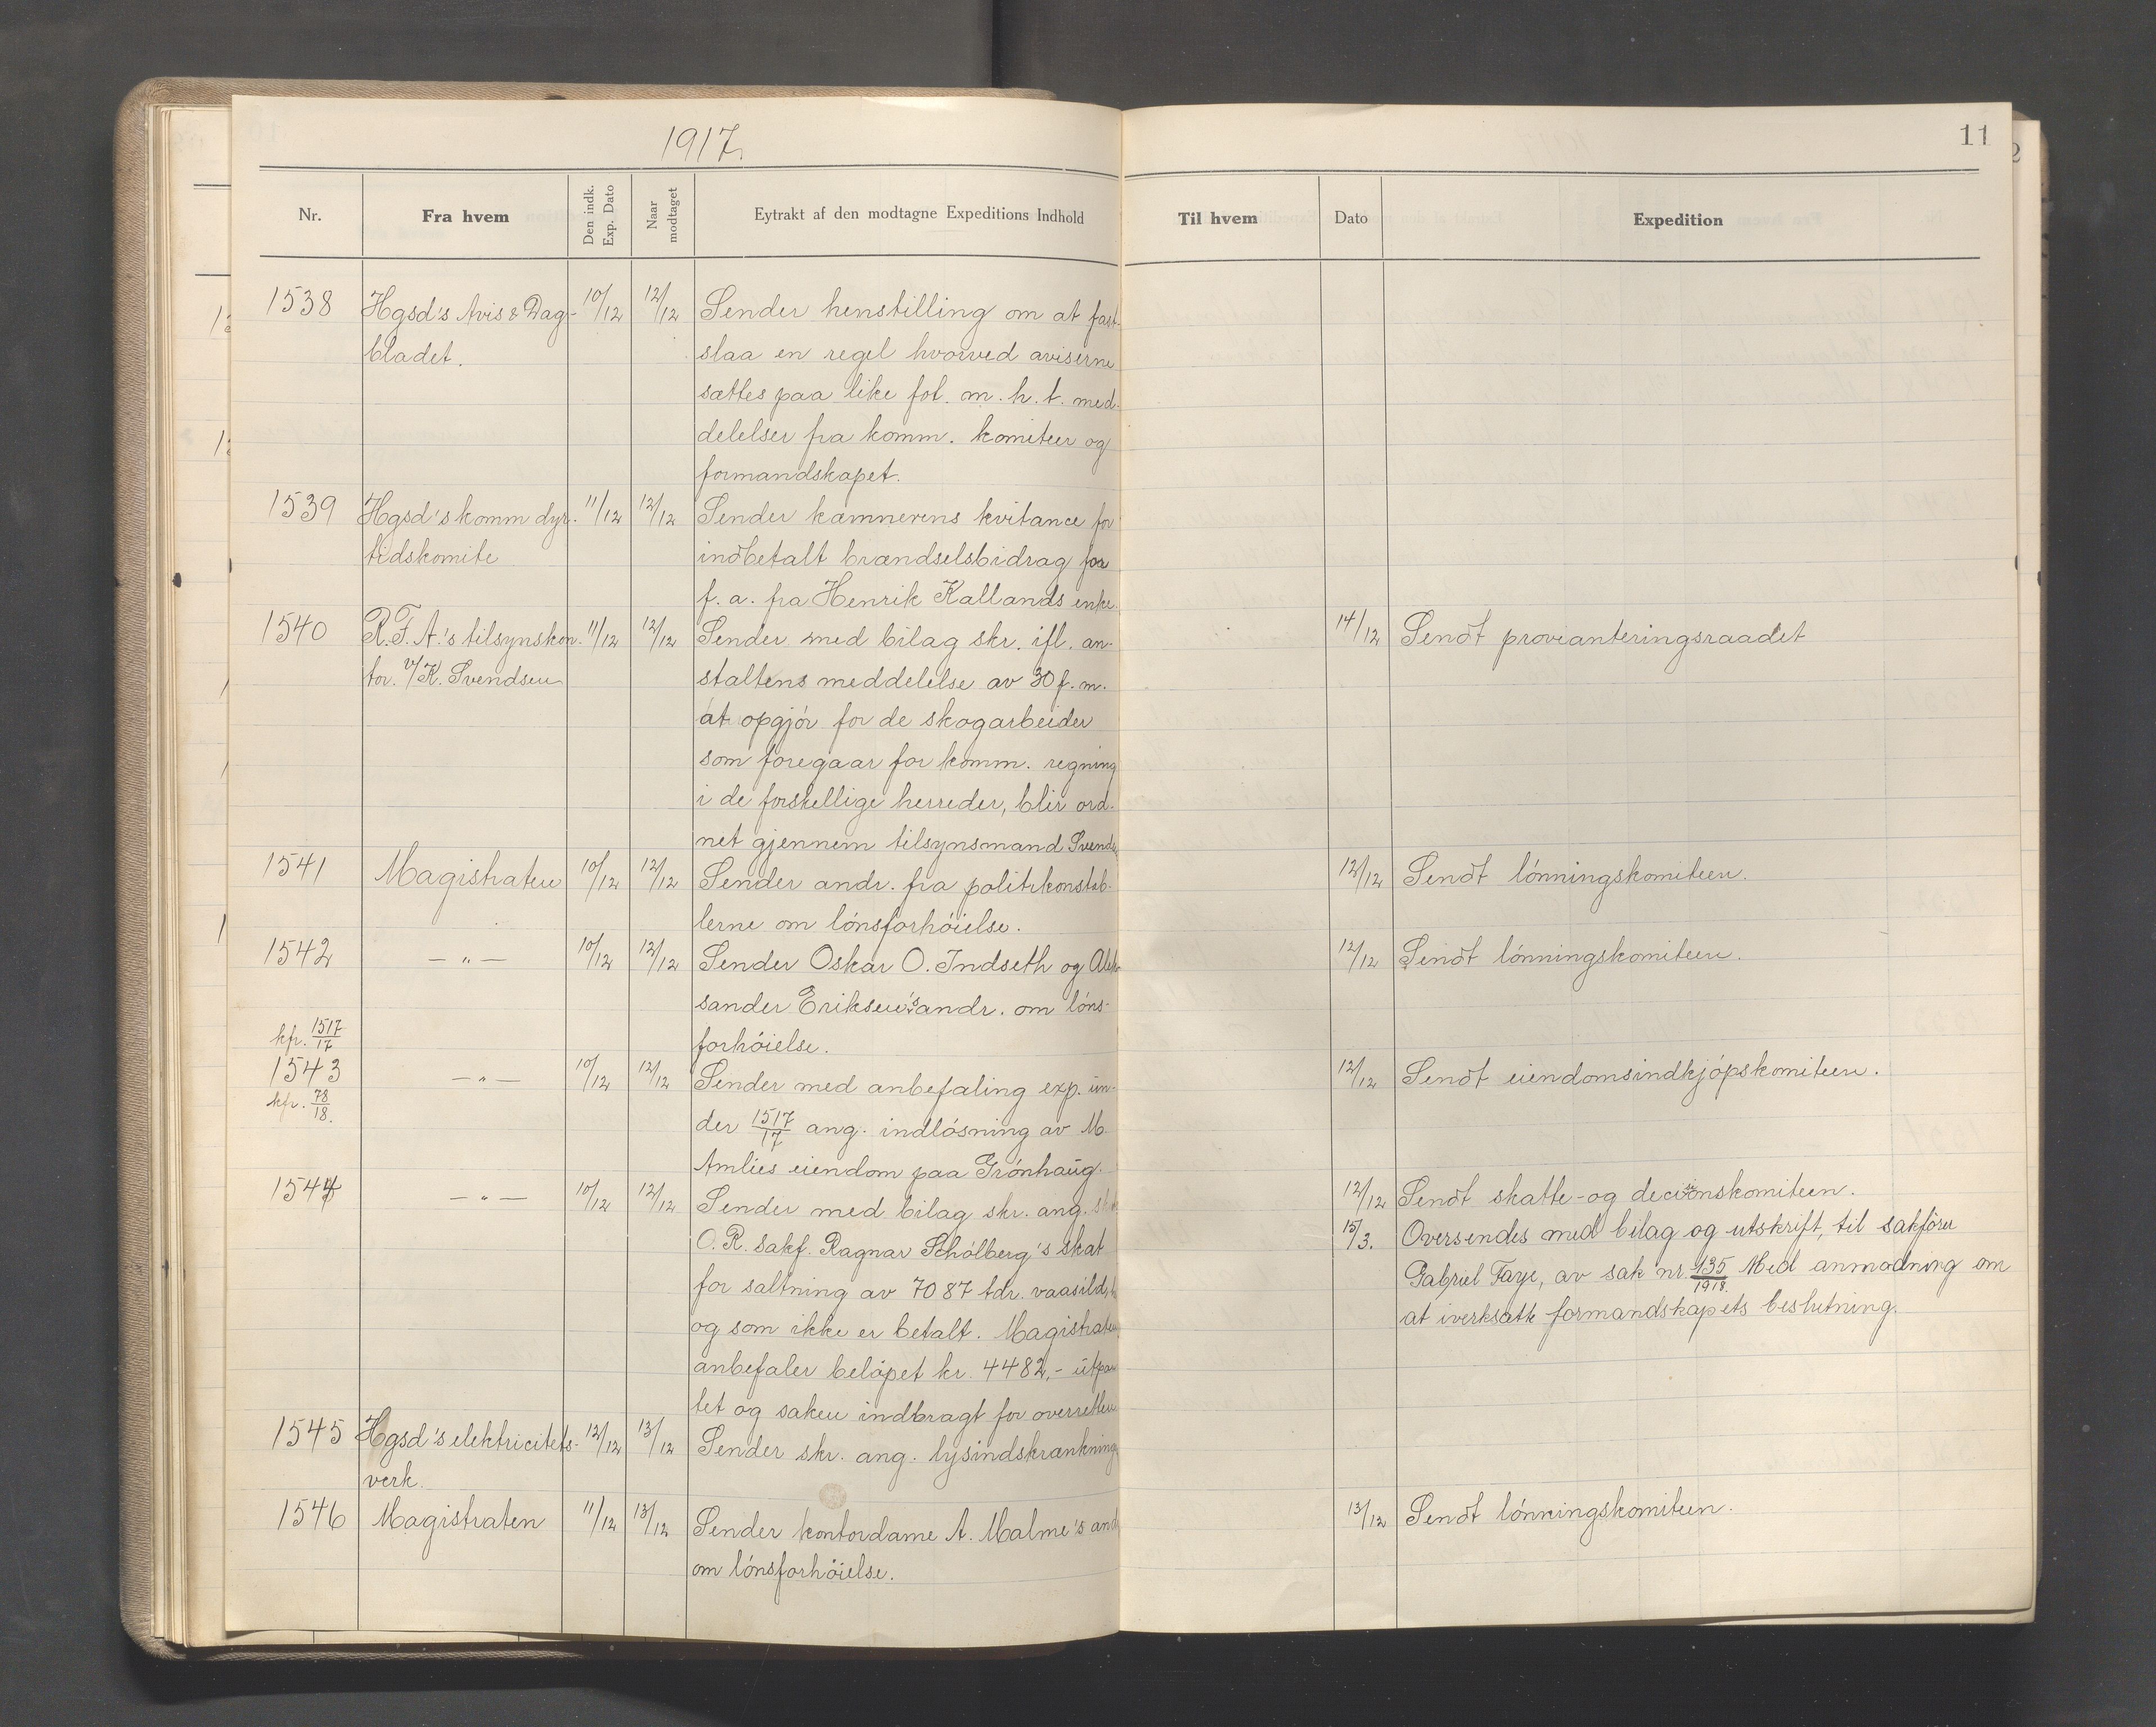 1917.
11
Nr.
Fra hvem
Den indk. Exp. Dato
Naar modtaget
Eytrakt af den modtagne Expeditions Indhold
Til hvem
Dato
Expedition
1538 Hgsd's Avis & Dag- 10/12 12/12 Sender henstilling om at fast-
bladet. slaa en regel hvorved aviserne
sættes paa like fot. m. h. t. med-
delelser fra komm. komiteer og
formandskapet.
1539 Hgsd's komm dyr- 11/12 12/12 Sender kæmnerens kvitance for
tidskomite indbetalt brændselsbidrag for
f. a. fra Henrik Kallands enke.
1540 R. F. A.'s tilsynskon- 11/12 12/12 Sender med bilag skr. ifl. an- 14/12 Sendt provianteringsraadet
tor. v/K. Svendsen staltens meddelelse av 30 f. m.
at opgjör for de skogarbeider
som foregaar for komm. regning
i de forskellige herreder, blir ord-
net gjennem tilsynsmand
1541 Magistraten 10/12 12/12 Sender andr. fra politikonstab- 12/12 Sendt lönningskomiteen.
lerne om lönsforhöielse.
1542 — " — 10/12 12/12 Sender Oskar O. Indseth og Alek- 12/12 Sendt lönningskomiteen.
sander Eriksen's andr. om löns-
forhöielse.
kfr. 1517/17
1543 — " — 10/12 12/12 Sender med anbefaling exp. un- 12/12 Sendt eiendomsindkjöpskomiteen.
kfr. 78/18. der 1517/17 ang. indlösning av M.
Amlies eiendom paa Grönhaug.
1544 — " — 10/12 12/12 Sender med bilag skr. ang. 12/12 Sendt skatte- og decisionskomiteen.
O. R. sakf. Ragnar Schölberg's skat 15/3. Oversendes med bilag og utskrift, til sakförer
for saltning av 7087 tdr. vaarsild, Gabriel Faye, av sak nr. 135/1918. Med anmodning om
og som ikke er betalt. Magistraten at iverksætte formandskapets beslutning.
anbefaler belöpet kr. 4482,- utpan-
tet og saken indbragt for overretten
1545 Hgsd's elektricitets- 12/12 13/12 Sender skr. ang. lysindskrænkning
verk.
1546 Magistraten 11/12 13/12 Sender kontordame A. Malme's andr. 13/12 Sendt lönningskomiteen.
om lönsforhöielse.